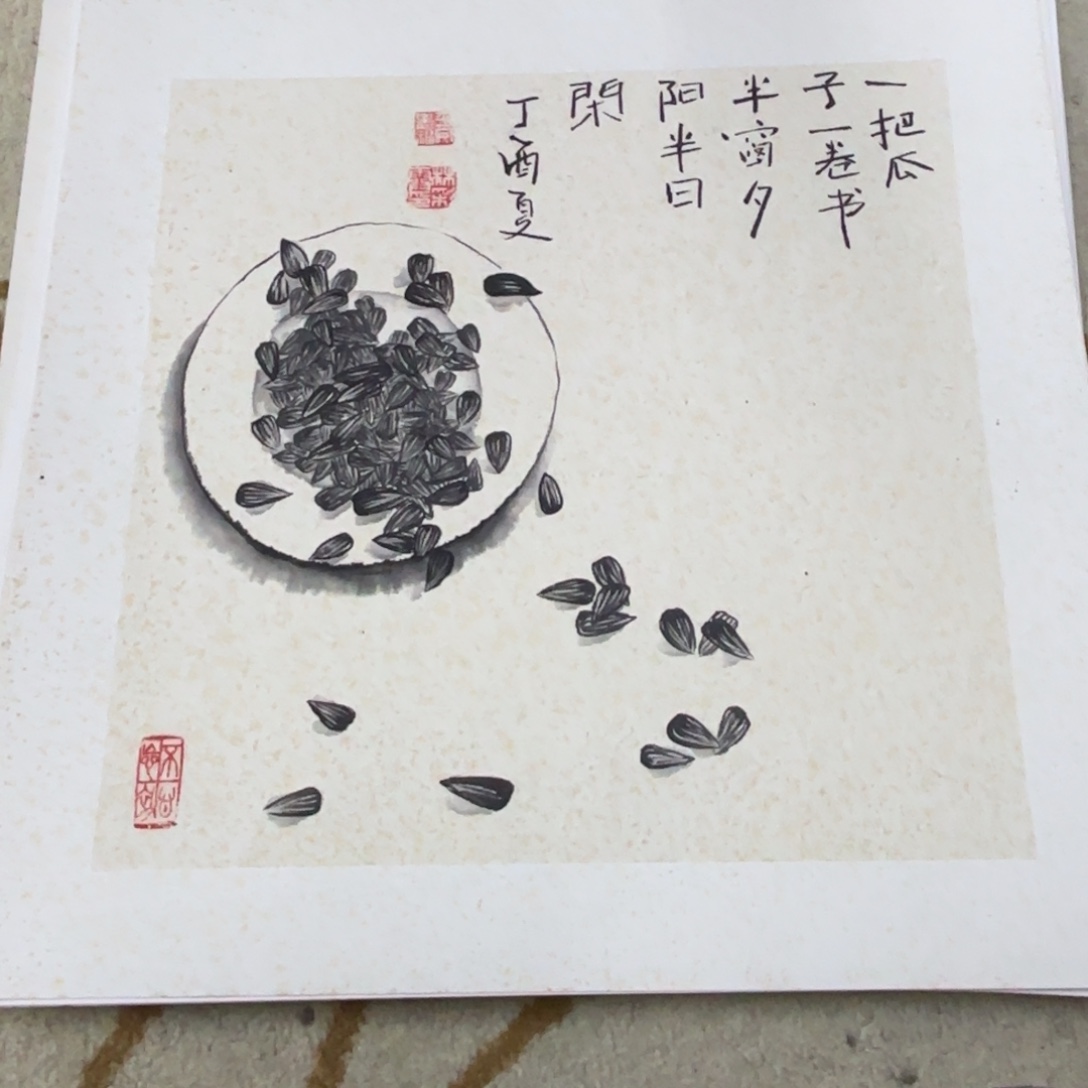 一把瓜
子一卷书
半窗夕
阳半日
閑
丁酉夏